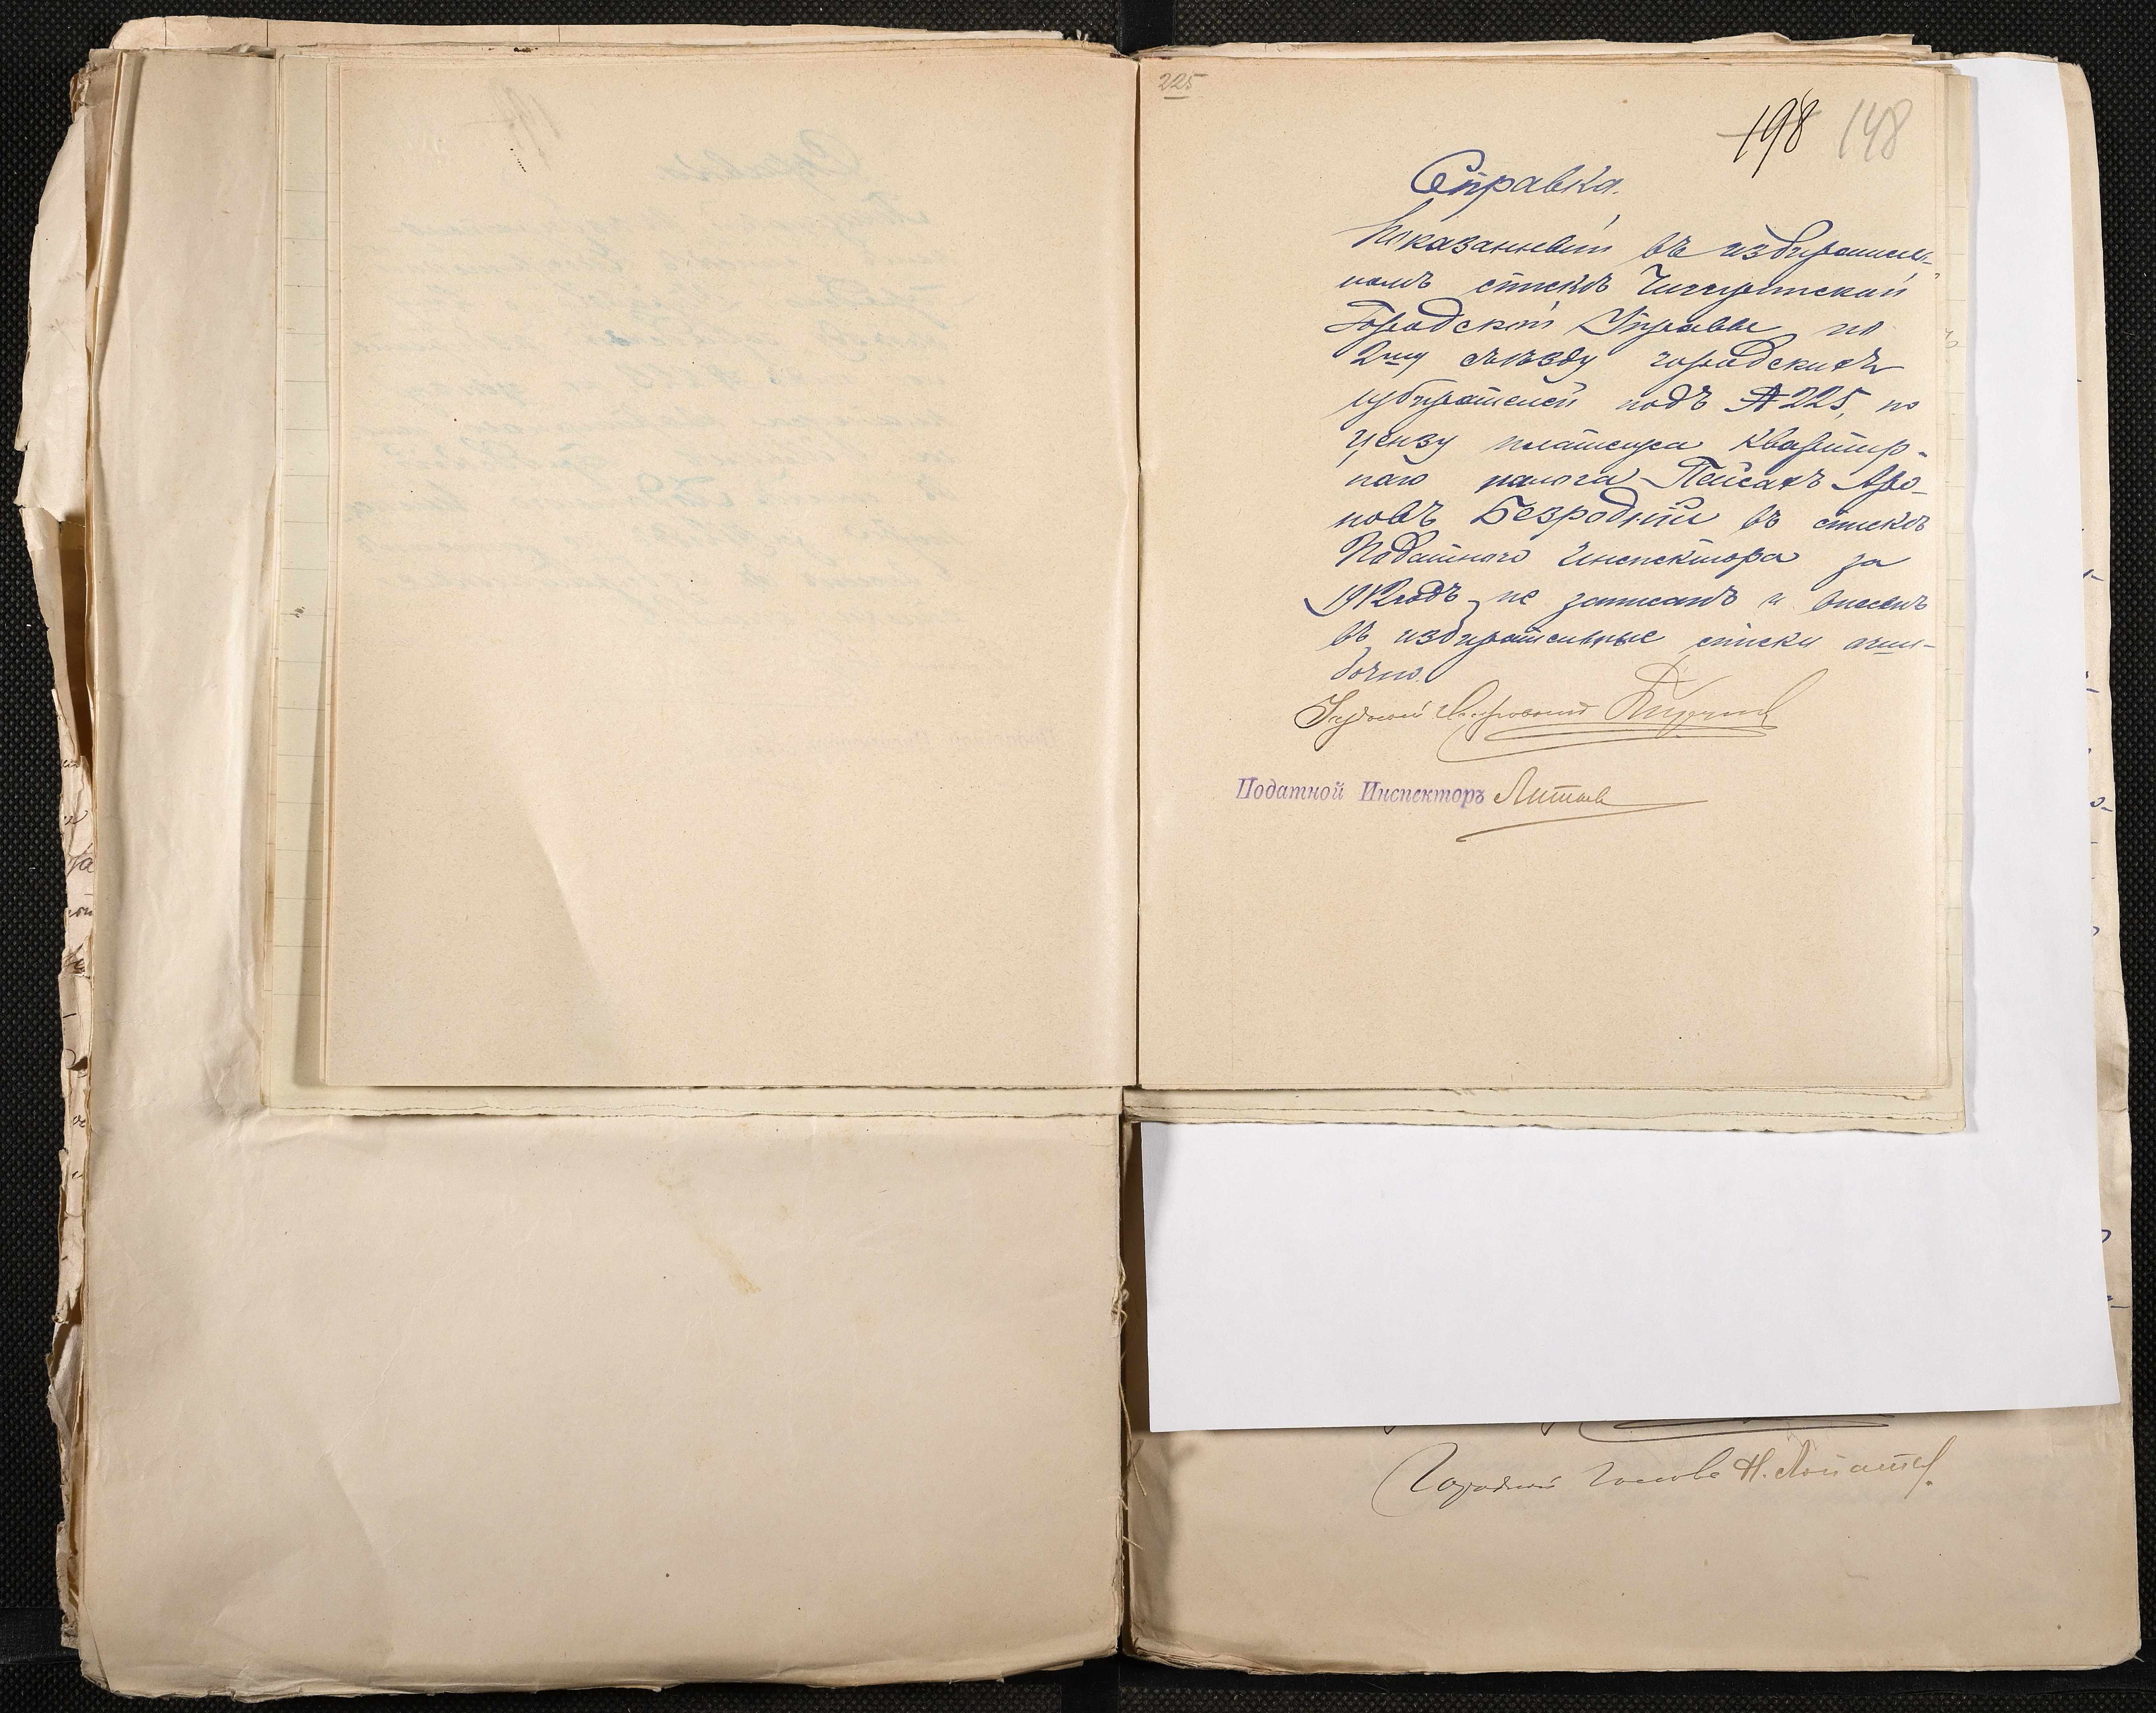 225
198 148
Справка.
Показанный въ избиратель-
номъ спискѣ Чигиринской
Городской Управы по
2му съѣзду городскихъ
избирателей подъ № 225, по
цензу платежа квартир-
наго налога Пейсахъ Аро-
новъ Безродный въ спискѣ
Податного Инспектора за
1912 годъ не записанъ и внесенъ
въ избирательные списки оши-
бочно.
Уѣздный
Податной Инспекторъ
Городской Голова Н.